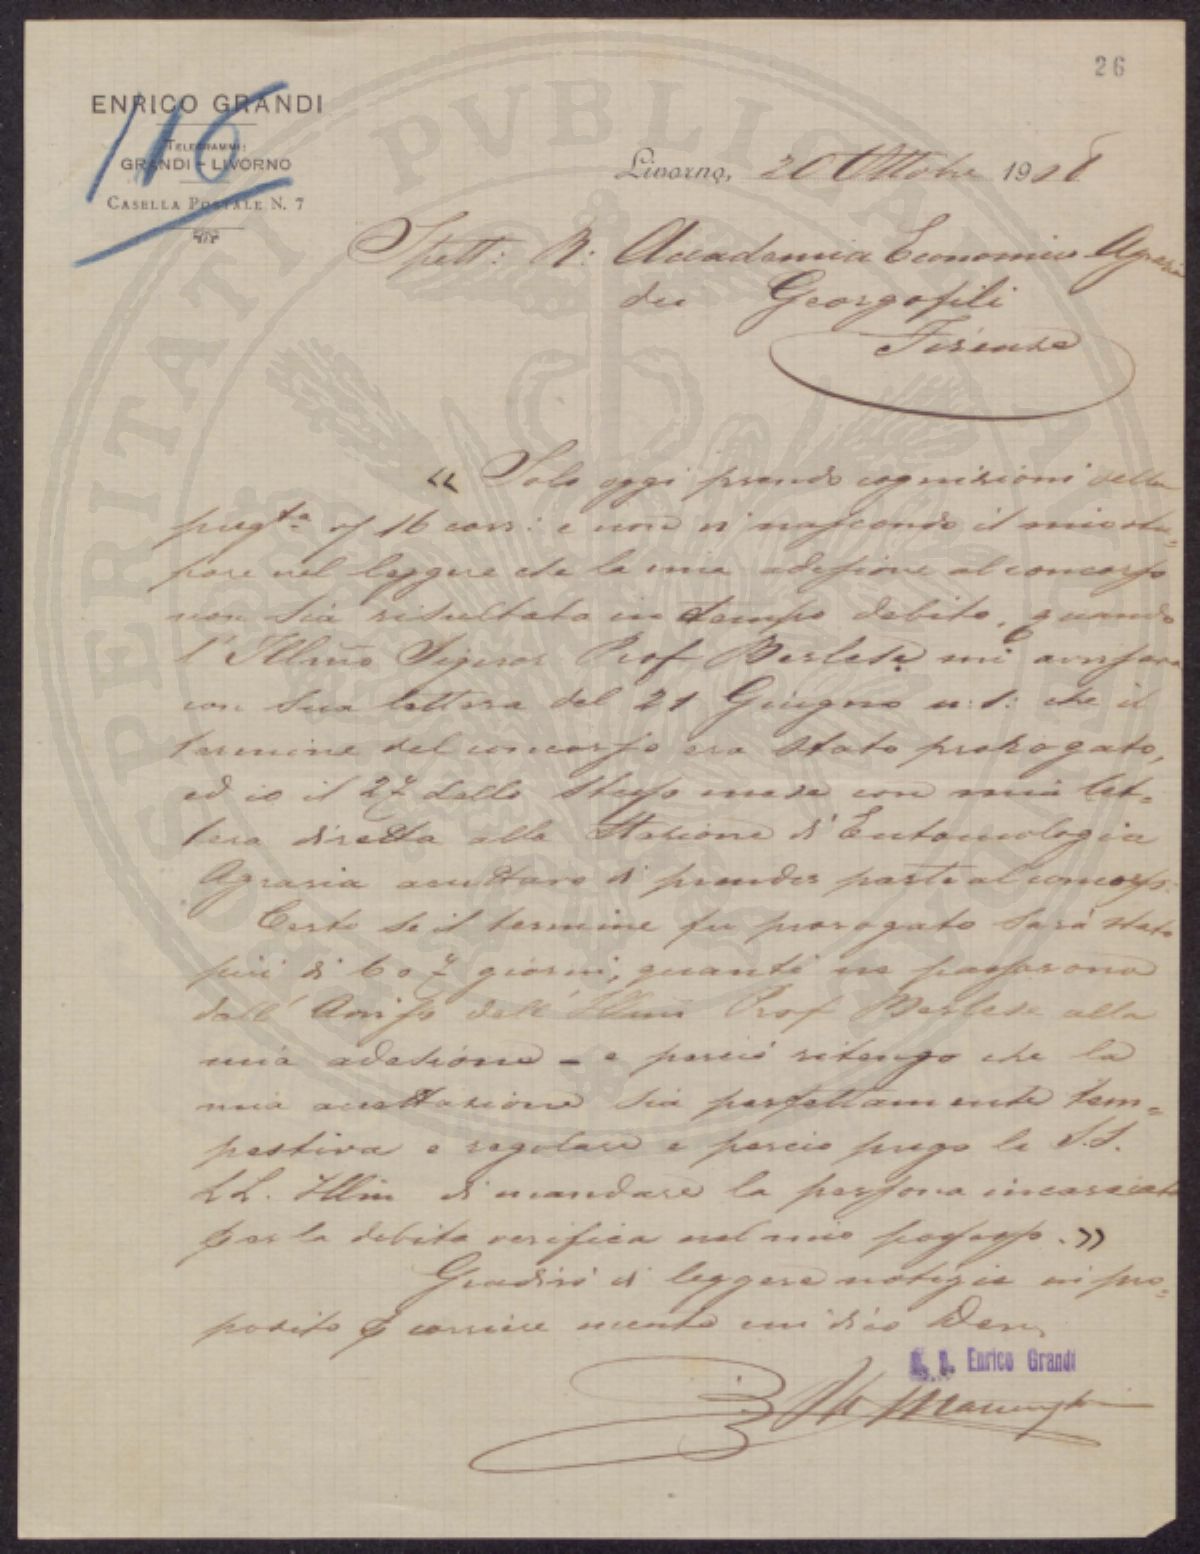 26
ENRICO GRANDI
TELEGRAMMI:
GRANDI - LIVORNO
CASELLA POSTALE N. 7
116
Livorno, 20 Ottobre 1908
Spett: R: Accademia Economico Agraria
dei Georgofili
Firenze
« Solo oggi prendo cognizioni della
preg.ta 16 corr: e non vi nascondo il mio stu=
pore nel leggere che la mia adesione al concorso
non sia risultata in tempo debito, quando
l'Illmo Signor Prof Berlese mi avvisava
con sua lettera del 21 Giugno u: s: che il
termine del concorso era stato prorogato,
ed io il 27 dello stesso mese con mia let=
tera diretta alla Stazione d'Entomologia
Agraria accettavo di prender parte al concorso.
Certo se il termine fu prorogato sarà stato
più di 6 o 7 giorni, quanti ne passarono
dall'avviso dell'Illmo Prof Berlese alla
mia adesione - e perciò ritengo che la
mia accettazione sia perfettamente tem=
pestiva e regolare e perciò prego le S.S.
LL. Illme di mandare la persona incaricata
per la debita verifica nel mio possesso. »
Gradirò di leggere notizie in pro=
posito e mi dico Dev.
p. p. Enrico Grandi